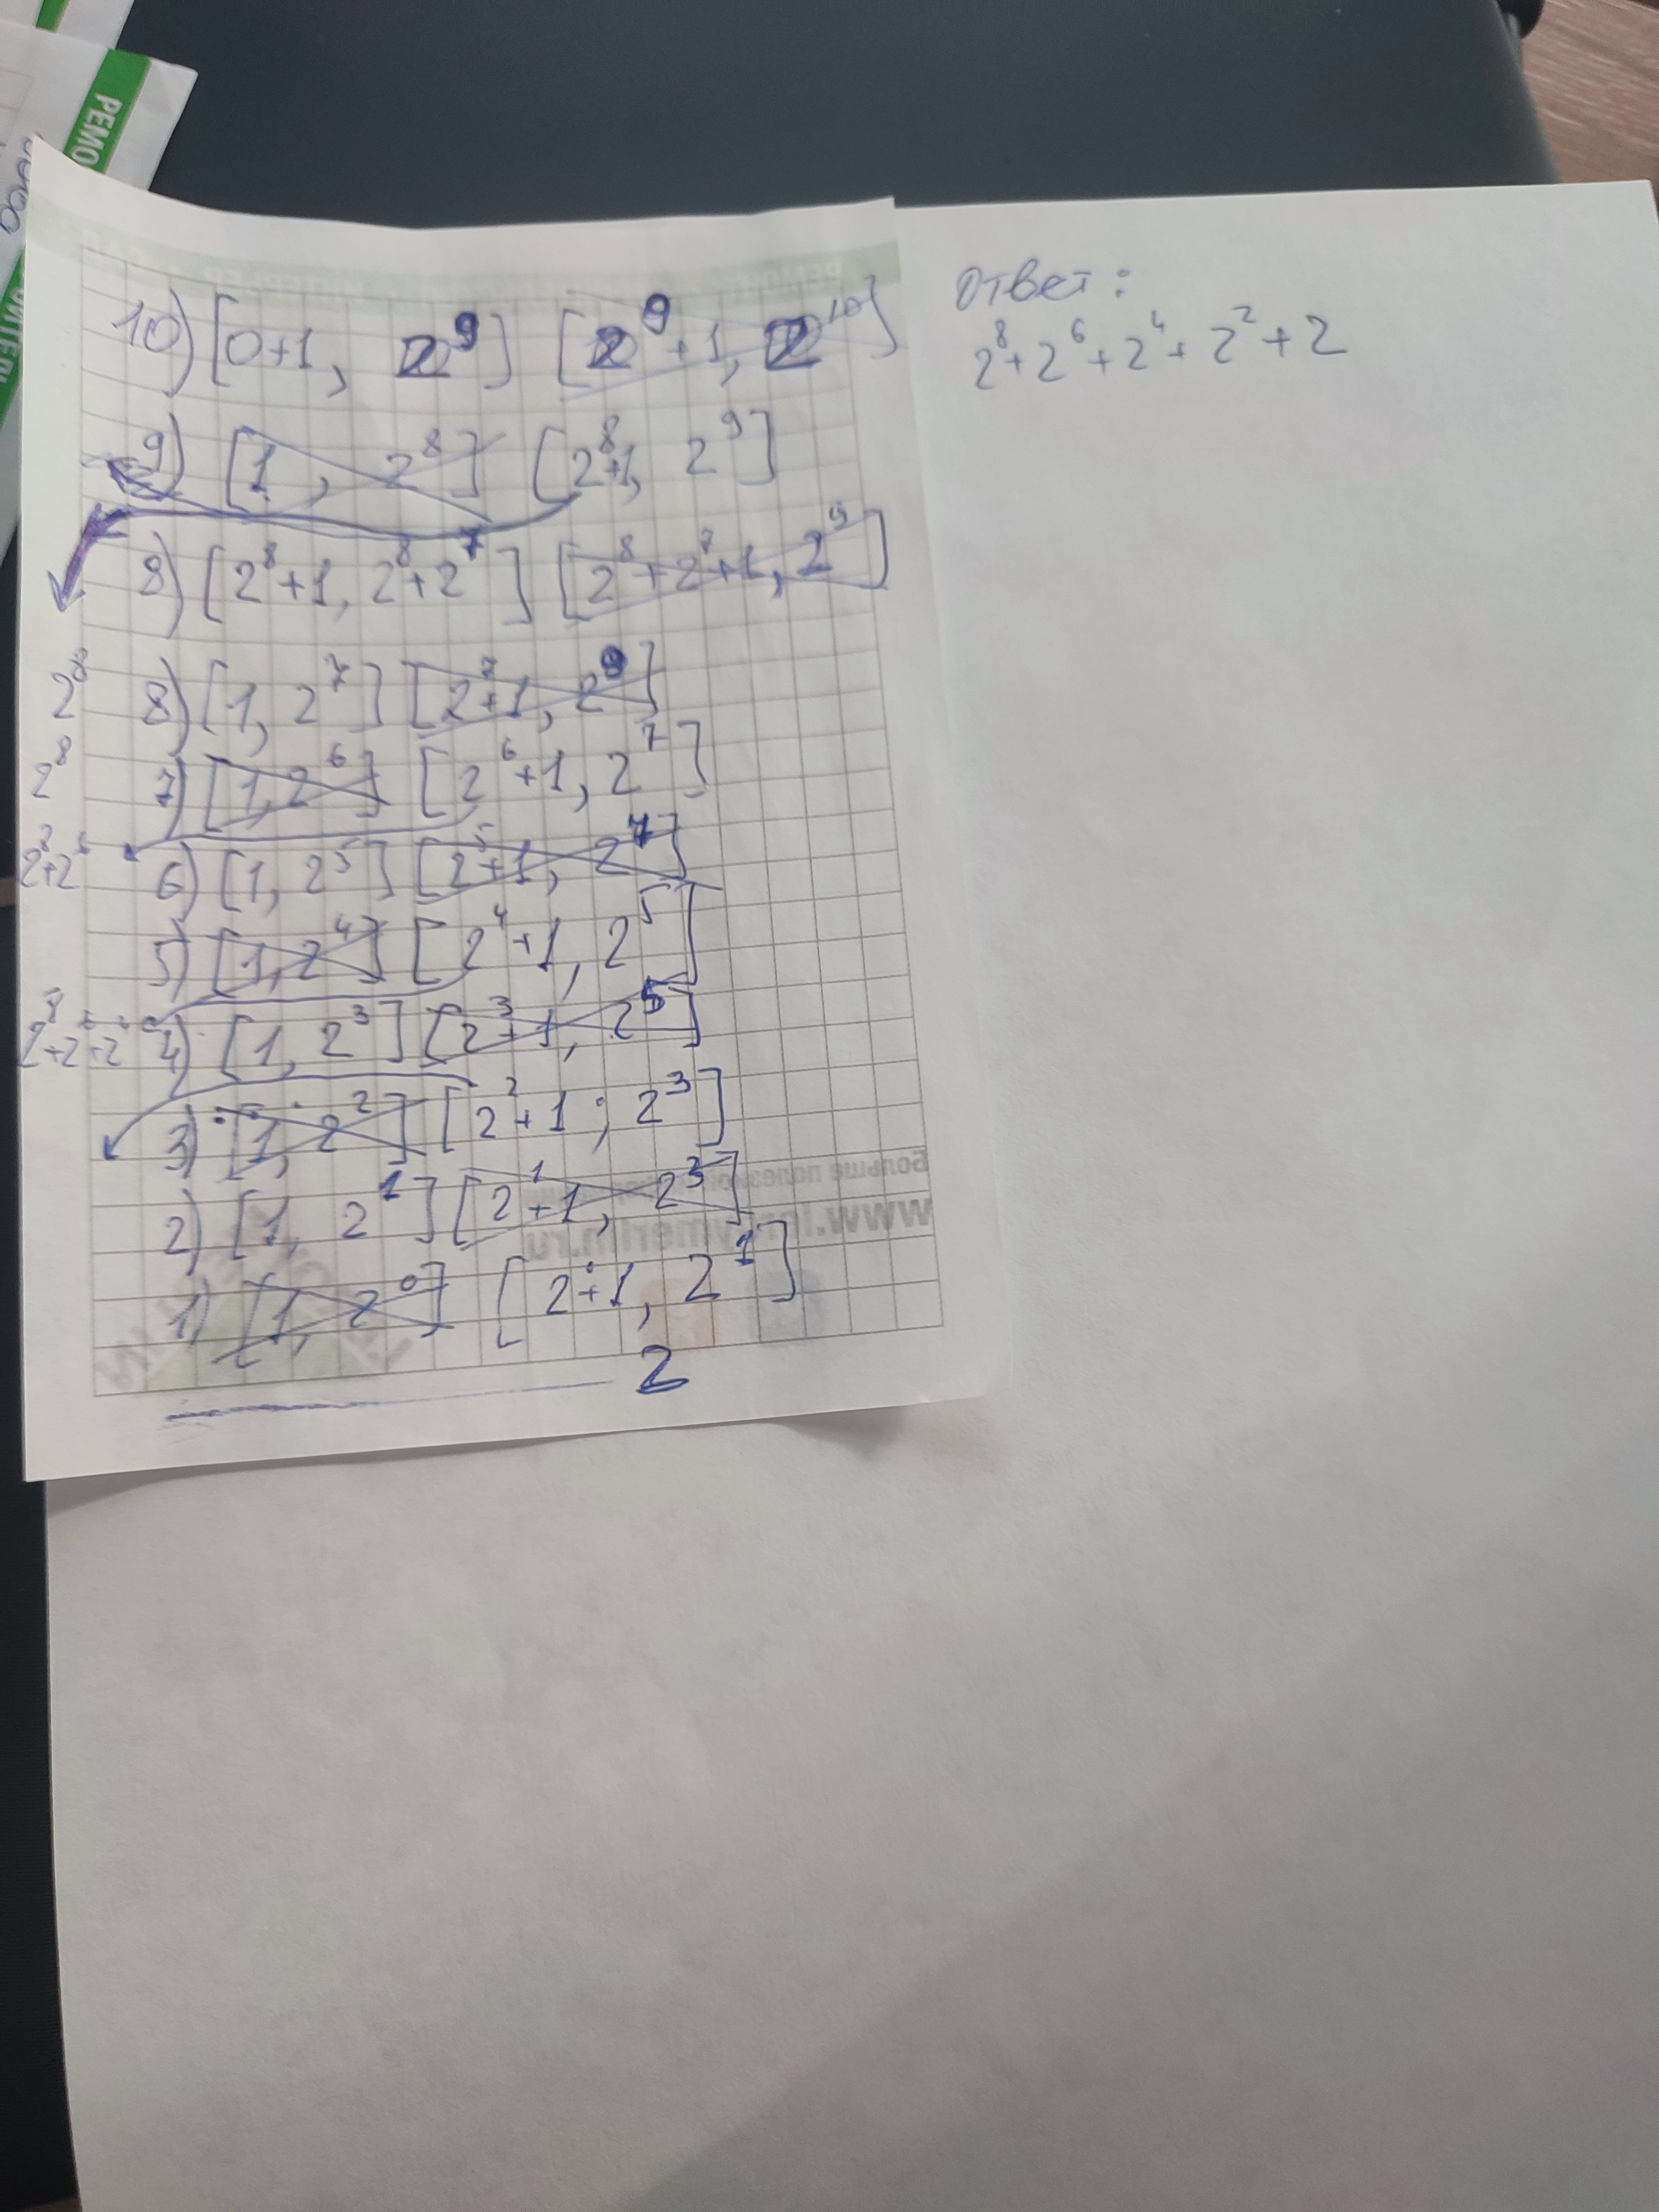 РЕМО
10) [0+1, 2⁹] [2⁹+1, 2¹⁰]
9) [1, 2⁸] [2⁸+1, 2⁹]
8) [2⁸+1, 2⁸+2⁷] [2⁸+2⁷+1, 2⁹]
2⁸ 8) [1, 2⁷] [2⁷+1, 2⁹]
2⁸ 7) [1, 2⁶] [2⁶+1, 2⁷]
2⁸+2⁶ 6) [1, 2⁵] [2⁵+1, 2⁷]
5) [1, 2⁴] [2⁴+1, 2⁵]
4) [1, 2³] [2³+1, 2⁵]
3) [1, 2²] [2²+1; 2³]
2) [1, 2¹] [2¹+1, 2³]
1) [1, 2⁰] [2⁰+1, 2¹]
2
Ответ:
2⁸+2⁶+2⁴+2²+2